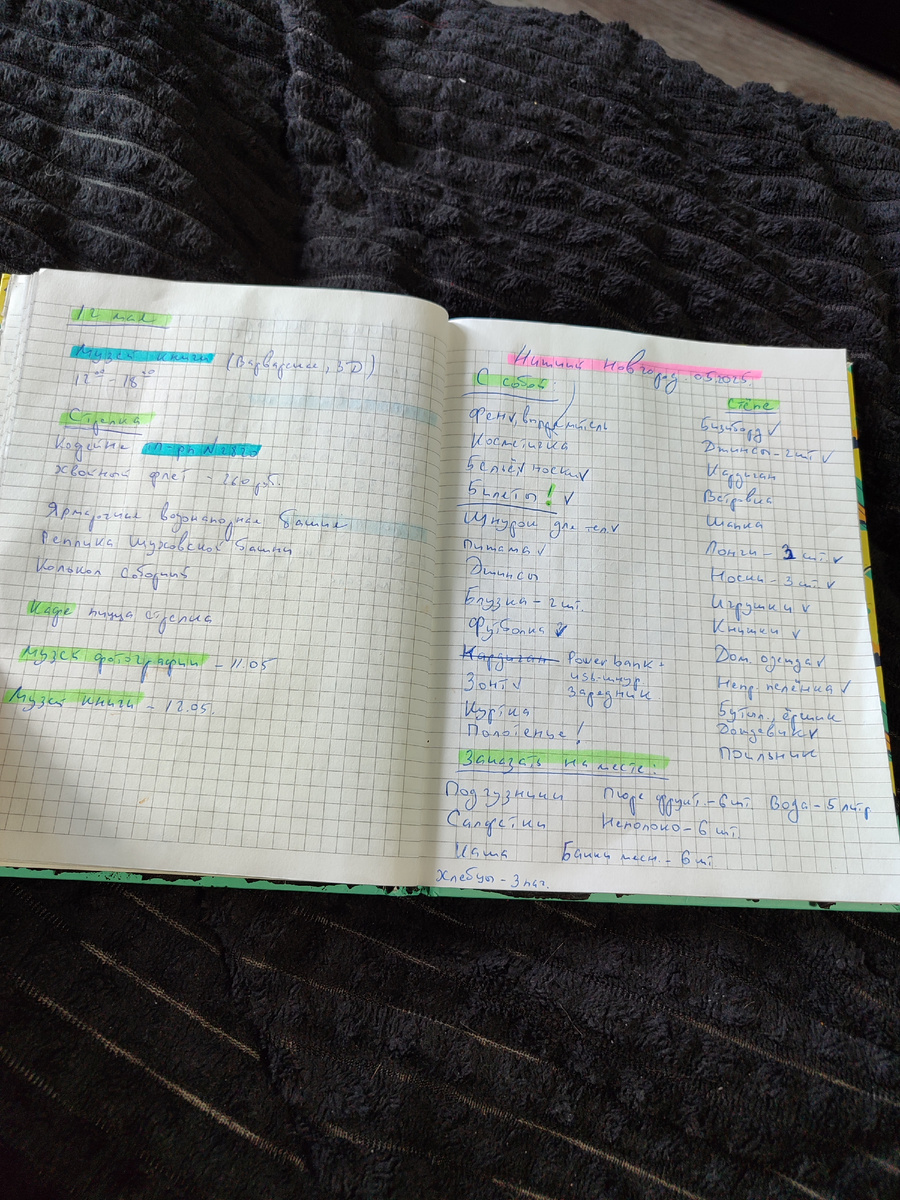 12 мая
Музей книги (Варварская, 3Д)
12⁰⁰ - 18⁰⁰
Стрелка
Кофейня
хвойный флет - 260 р.
Ярмарочные водонапорные башни
Реплика Шуховской башни
Колокол Соборный
Кафе пицца Стрелка
Музей фотографии - 11.05
Музей книги - 12.05.
Нижний Новгород 05.2025.
С собой
Фен✓, выпрямитель
Косметичка
Бельё✓ носки✓
Билеты! ✓
Шнурок для тел✓
Пижама ✓
Джинсы
Блузка - 2 шт.
Футболка ✓
Кардиган Powerbank +
usb-шнур
зарядник
Зонт ✓
Куртка
Полотенце!
Стёпе
Бизиборд ✓
Джинсы - 2 шт ✓
Кардиган
Ветровка
Шапка
Лонги - 3 шт. ✓
Носки - 3 шт. ✓
Игрушки ✓
Книжки ✓
Дом. одежда ✓
Непр. пелёнка ✓
Бутыл., ёршик
Дождевик ✓
Поильник
Заказать на месте:
Подгузники Пюре фрукт. - 6 шт Вода - 5 литр
Салфетки Неполоко - 6 шт.
Каша Банки мясн. - 6 шт
Хлебцы - 3 пач.